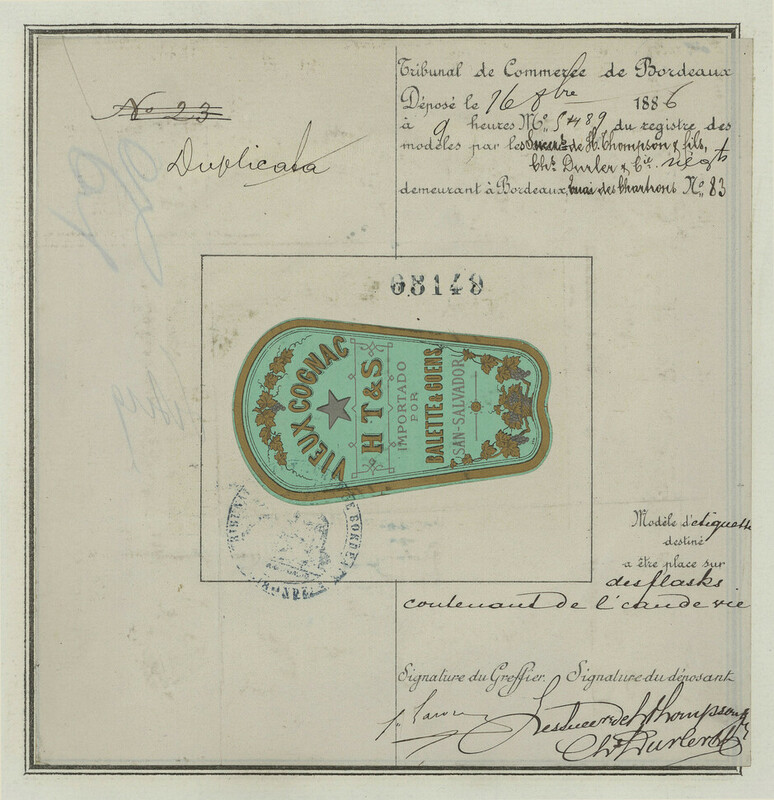 No 23
Duplicata
Tribunal de Commerce de Bordeaux
Déposé le 16 8bre 1886
à 9 heures No 5489 du registre des
modèles par les Succrs de H. Thompson & fils,
Chs Durler & Cie negts
demeurant à Bordeaux, quai des Chartrons No 83
68149
VIEUX COGNAC
HT&S
IMPORTADO
POR
BALETTE & GOENS
SAN-SALVADOR
TRIBUNAL DE BORDEAUX
Modèle d'etiquette
destiné
a être place sur
des flasks
contenant de l'eau de vie
Signature du Greffier. Signature du déposant
Les succrs de H Thompson
Chs Durler